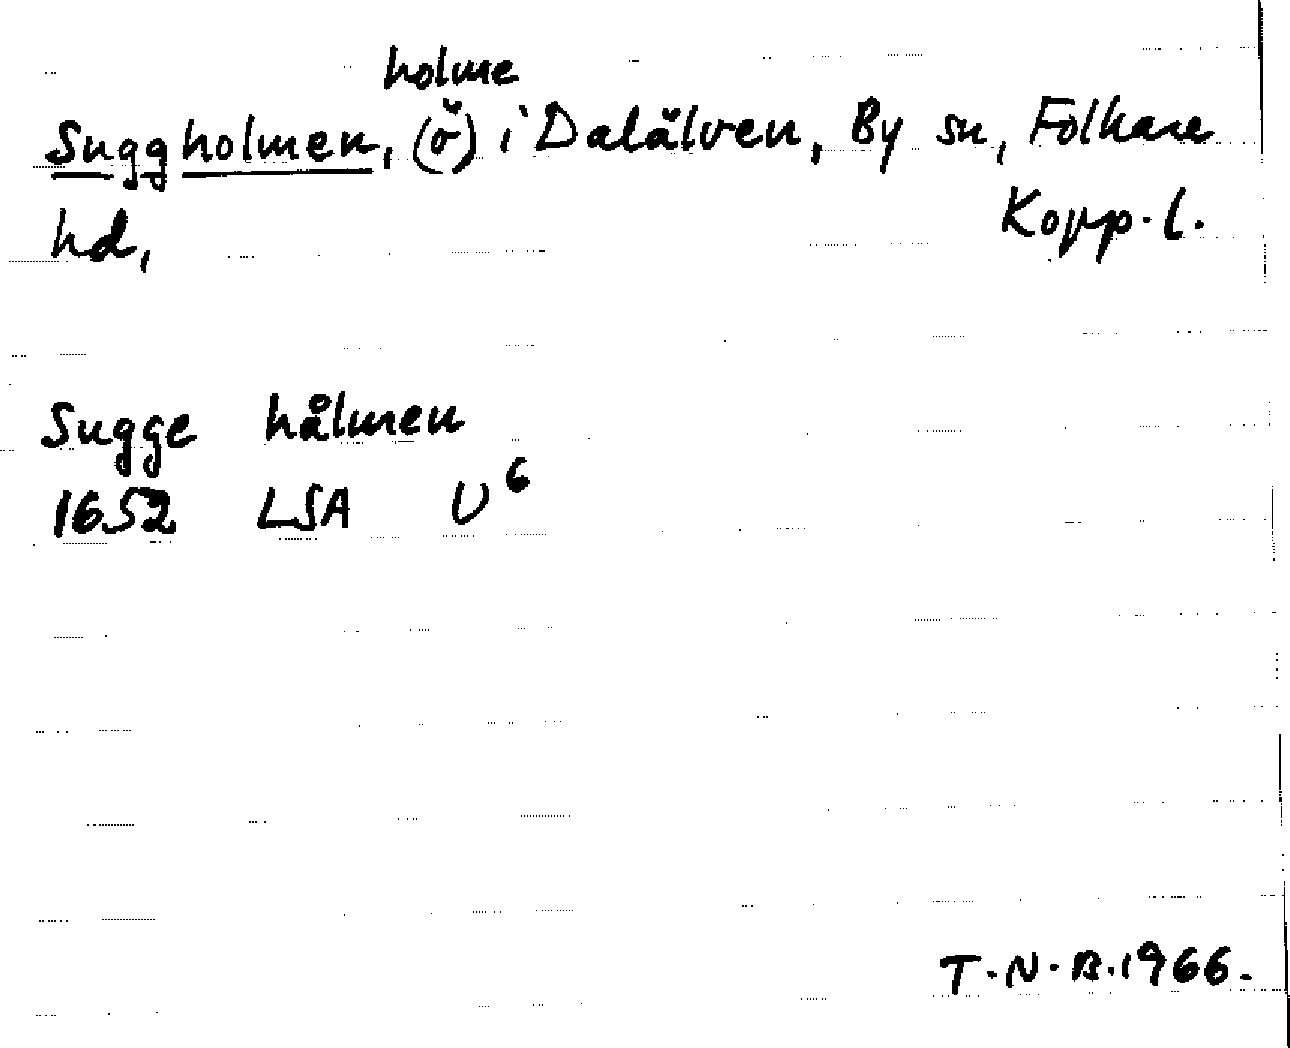 holme
Suggholmen, (ö) i Dalälven, By sn, Folkare
hd, Kopp. l.
Sugge hålmen
1652 LSA U6
T.N.B.1966.